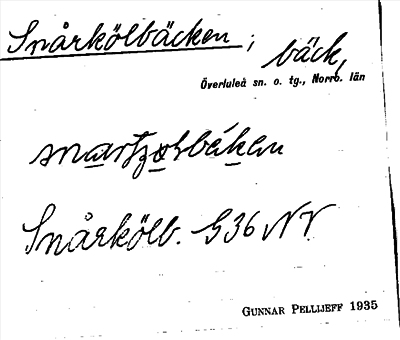 Snårkölbäcken; bäck,
Överluleå sn. o. tg., Norrb. län
Snårkölb. G36 NV.
GUNNAR PELLIJEFF 1935